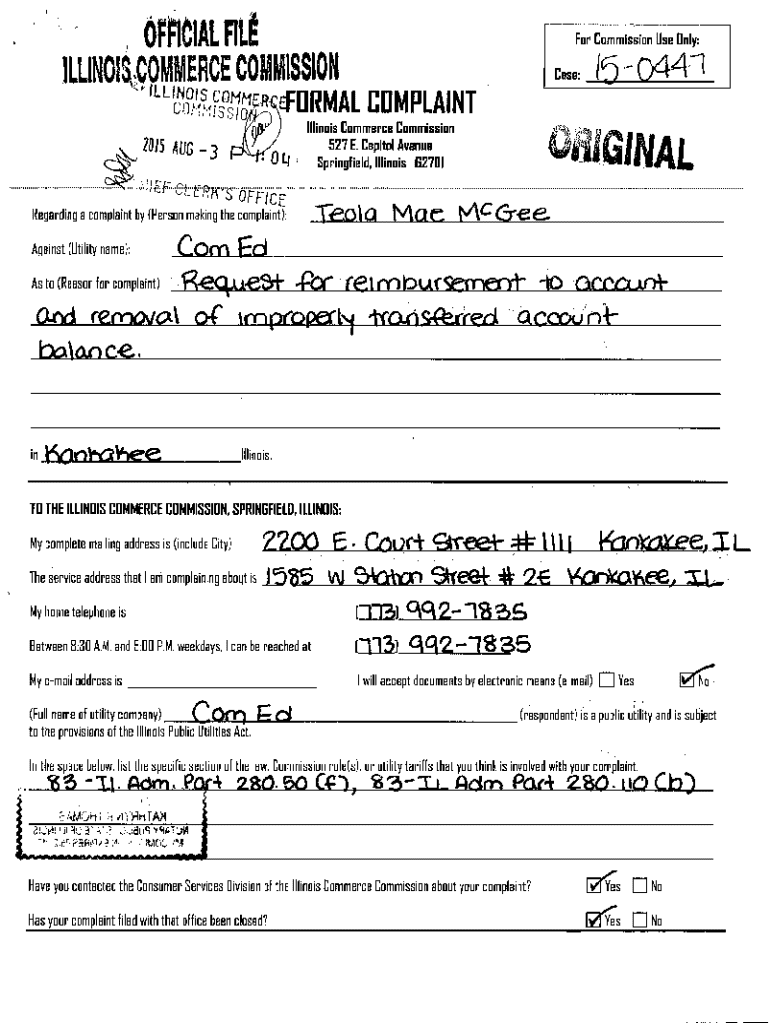 OFFICIAL FILE
ILLINOIS COMMERCE COMMISSION
For Commission Use Only:
Case: 15-0447
ILLINOIS COMMERCE
COMMISSION
FORMAL COMPLAINT
Illinois Commerce Commission
527 E. Capitol Avenue
Springfield, Illinois 62701
ORIGINAL
2015 AUG -3 P 1:04
CHIEF CLERK'S OFFICE
Regarding a complaint by (Person making the complaint): Teola Mae McGee
Against (Utility name): Com Ed
As to (Reason for complaint) Request for reimbursement to account
and removal of improperly transferred account
balance.
in Kankakee Illinois.
TO THE ILLINOIS COMMERCE COMMISSION, SPRINGFIELD, ILLINOIS:
My complete mailing address is (include City) 2200 E. Court Street #1111 Kankakee, IL
The service address that I am complaining about is 1585 W Station Street # 2E Kankakee, IL
My home telephone is (773) 992-7835
Between 8:30 A.M. and 5:00 P.M. weekdays, I can be reached at (773) 992-7835
My e-mail address is I will accept documents by electronic means (e mail) Yes No
(Full name of utility company) Com Ed (respondent) is a public utility and is subject
to the provisions of the Illinois Public Utilities Act.
In the space below, list the specific section of the law, Commission rule(s), or utility tariffs that you think is involved with your complaint.
83-Il. Adm. Part 280.50 (f), 83-IL Adm Part 280.110 (b)
Have you contacted the Consumer Services Division of the Illinois Commerce Commission about your complaint? Yes No
Has your complaint filed with that office been closed? Yes No